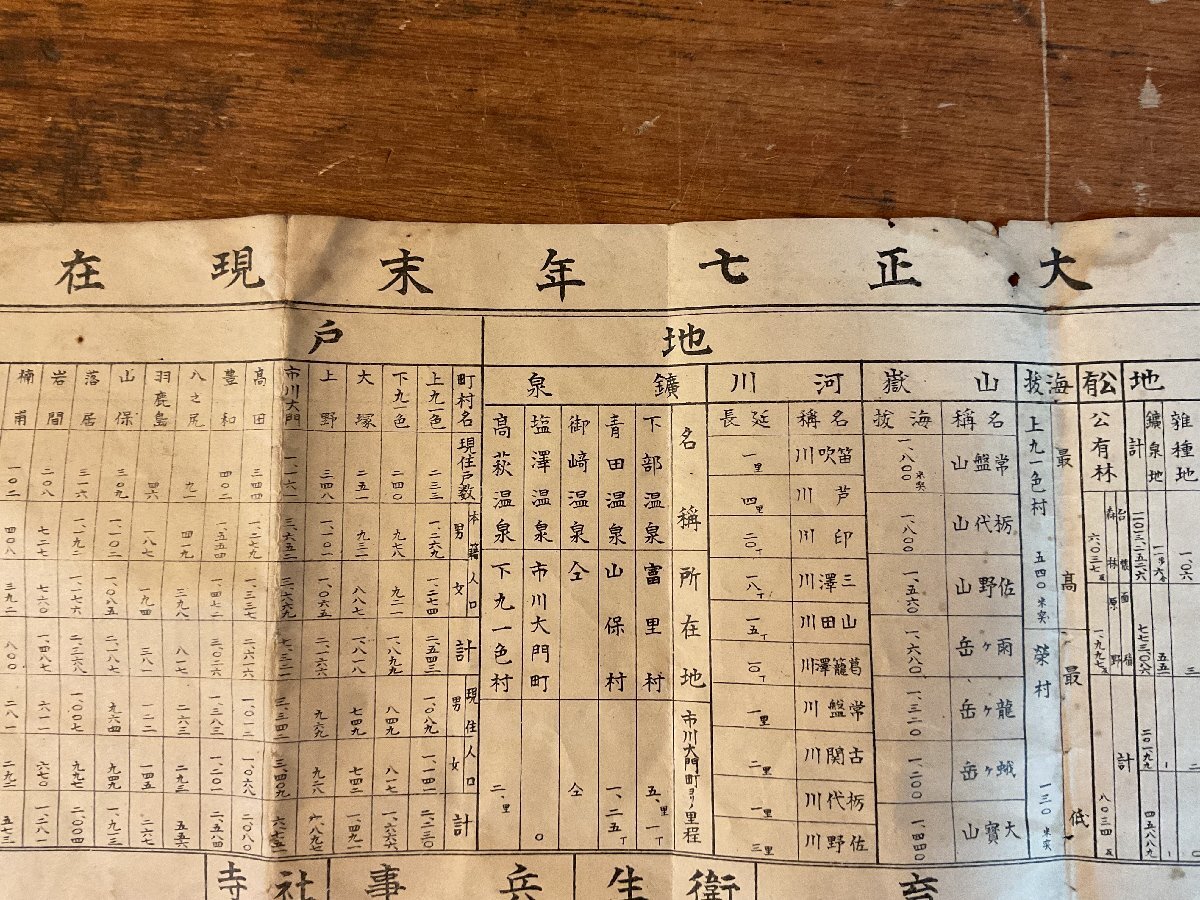 大正七年末現在
地
戶
地
雜種地
一〇六
三
鑛泉地
計
有
公有林
計
海拔
最高
上九一色村
五四〇米突
最低
榮村
一三〇米突
山嶽
名稱
海拔
常盤山
一、八〇〇米突
栃代山
一、八〇〇
佐野山
一、五六〇
雨ヶ岳
一、六八〇
龍ヶ岳
一、三二〇
蛾ヶ岳
一、二〇〇
大寶山
一、四四〇
河川
名稱
延長
笛吹川
一里
芦川
四里
印川
二〇丁
三澤川
一八丁
山田川
一五丁
葛籠澤川
常盤川
一里
古關川
二里
栃代川
一里
佐野川
三里
鑛泉
名稱
所在地
市川大門町ヨリノ里程
下部溫泉
富里村
五、里一丁
青田溫泉
山保村
一、二五丁
御﨑溫泉
仝
仝
塩澤溫泉
市川大門町
〇
高萩溫泉
下九一色村
二、里
町村名
現住戶數
本籍人口
男
女
計
現住人口
男
女
計
上九一色
二三三
一、二六九
一、二七四
二、五四三
一、〇八九
一、一四一
二、二三〇
下九一色
二四〇
九七八
九二一
一、八九九
八四九
八一七
一、六六六
大塚
二五一
九三一
八八七
一、八一八
七四九
七四二
一、四九一
上野
三四八
一、一〇一
一、〇六五
二、一六六
九六九
九二八
一、八九七
市川大門
一、一六一
三、六五二
三、六六九
七、三二一
高田
三四四
一、三三七
二、六一六
一、〇一二
一、〇六八
二、〇八〇
豐和
四〇二
一、五五四
一、四七二
三、〇二六
一、三八三
一、二〇一
二、五八四
八之尻
九一
四一九
三九八
八一七
二六三
二九三
五五六
羽鹿島
四六
一八七
一九四
三八一
一二二
一四五
二六七
山保
三〇九
一、一〇二
一、〇八五
二、一八七
九六四
九四九
一、九一三
落居
三一六
一、一九二
一、一七六
二、三六八
一、〇〇七
九九七
二、〇〇四
岩間
二〇八
七二七
七六〇
一、四八七
六一一
六七〇
一、二八一
楠甫
一〇二
四〇八
三九二
八〇〇
二八一
二九二
五七三
育
衛生
兵事
社寺